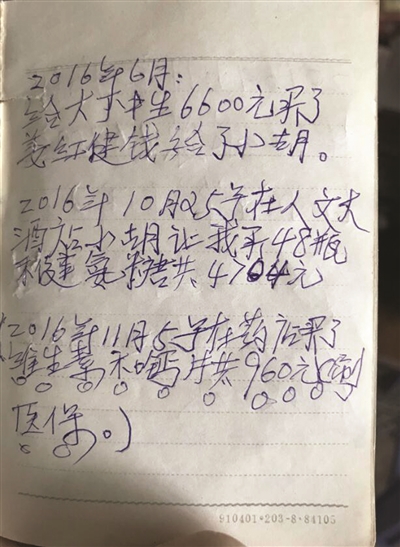 2016年6月:
给大木中生6600元买了
美红健钱给了小胡。
2016年10月25号在人文大
酒店小胡让我买48瓶
健氨糖共4704元
(2016年11月5号在药店买了
维生素禾哈钙片共960元(刷
医保。)
910401*203-8-84105